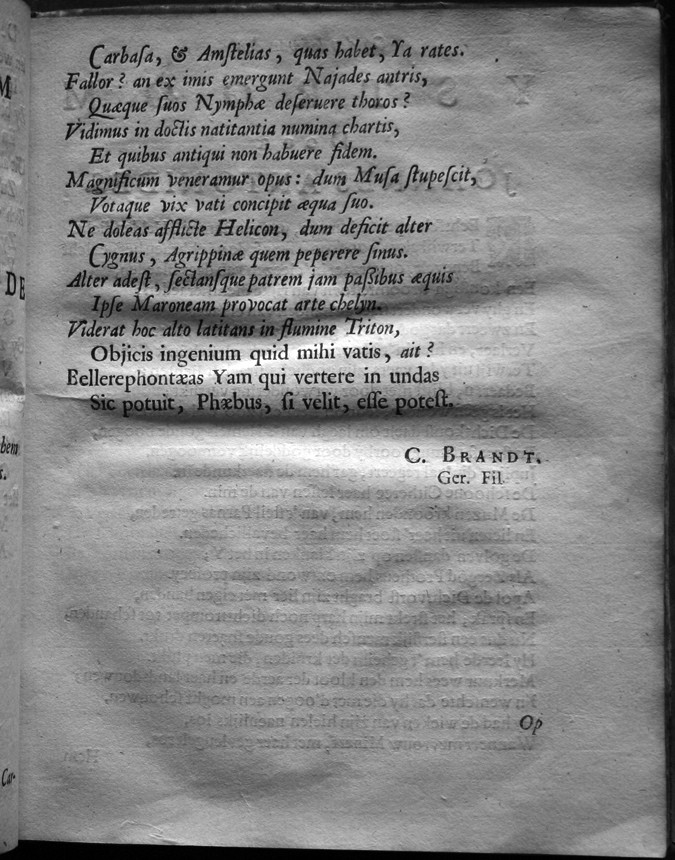 Carbaſa, & Amſtelias, quas habet, Ya rates.
Fallor? an ex imis emergunt Najades antris,
Quæque ſuos Nymphæ deſeruere thoros?
Vidimus in doctis natitantia numina chartis,
Et quibus antiqui non habuere fidem.
Magnificum veneramur opus: dum Muſa ſtupeſcit,
Votaque vix vati concipit æqua ſuo.
Ne doleas afflicte Helicon, dum deficit alter
Cygnus, Agrippinæ quem peperere ſinus.
Alter adeſt, ſectanſque patrem jam paſſibus æquis
Ipſe Maroneam provocat arte chelyn.
Viderat hoc alto latitans in flumine Triton,
Objicis ingenium quid mihi vatis, ait?
Bellerephontæas Yam qui vertere in undas
Sic potuit, Phæbus, ſi velit, eſſe poteſt.
C. BRANDT.
Ger. Fil.
Op
M
DE
bem
s.
Car-